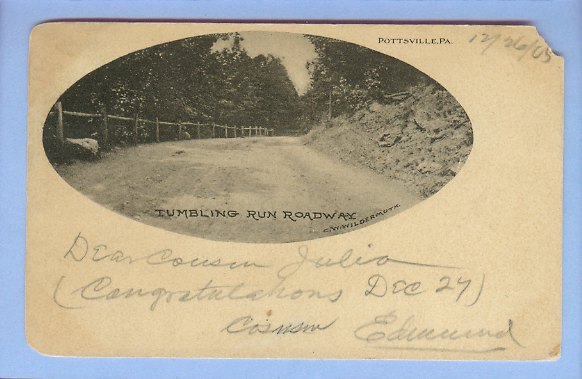 POTTSVILLE, PA.
12/26/05
TUMBLING RUN ROADWAY
C.W. WILDERMUTH.
Dear Cousin Julia
(Congratulations Dec 27)
Cosusm Edmund